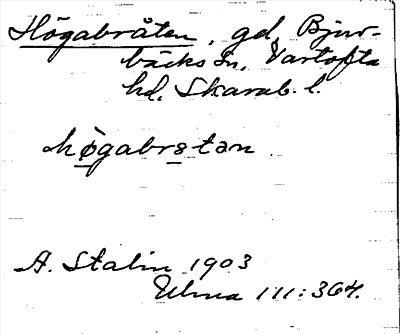 Högabråten, gd, Bjur-
bäcks sn, Vartofta
hd. Skarab. l.
høgabratan
A. Stalin 1903
Ulma 111:364.